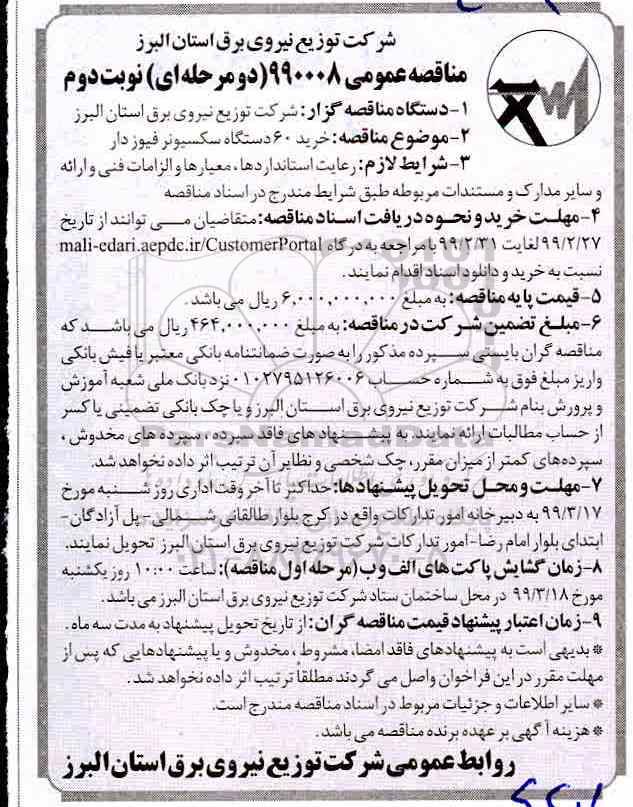 شرکت توزیع نیروی برق استان البرز
مناقصه عمومی ۹۹۰۰۰۸ (دو مرحله ای) نوبت دوم
۱-دستگاه مناقصه گزار: شرکت توزیع نیروی برق استان البرز
۲-موضوع مناقصه: خرید ۶۰ دستگاه سکسیونر فیوز دار
۳-شرایط لازم: رعایت استانداردها، معیارها و الزامات فنی و ارائه
و سایر مدارک و مستندات مربوطه طبق شرایط مندرج در اسناد مناقصه
۴-مهلت خرید و نحوه دریافت اسناد مناقصه: متقاضیان می توانند از تاریخ
۹۹/۲/۲۷ لغایت ۹۹/۲/۳۱ با مراجعه به درگاه mali-edari.aepdc.ir/CustomerPortal
نسبت به خرید و دانلود اسناد اقدام نمایند.
۵-قیمت پایه مناقصه: به مبلغ ۶,۰۰۰,۰۰۰,۰۰۰ ریال می باشد.
۶-مبلغ تضمین شرکت در مناقصه: به مبلغ ۴۶۴,۰۰۰,۰۰۰ ریال می باشد که
مناقصه گران بایستی سپرده مذکور را به صورت ضمانتنامه بانکی معتبر یا فیش بانکی
واریز مبلغ فوق به شماره حساب ۰۱۰۲۷۹۵۱۲۶۰۰۶ نزد بانک ملی شعبه آموزش
و پرورش بنام شرکت توزیع نیروی برق استان البرز و یا چک بانکی تضمینی یا کسر
از حساب مطالبات ارائه نمایند. به پیشنهادهای فاقد سپرده، سپرده های مخدوش،
سپرده‌های کمتر از میزان مقرر، چک شخصی و نظایر آن ترتیب اثر داده نخواهد شد.
۷-مهلت و محل تحویل پیشنهادها: حداکثر تا آخر وقت اداری روز شنبه مورخ
۹۹/۳/۱۷ به دبیرخانه امور تدارکات واقع در کرج بلوار طالقانی شمالی-پل آزادگان-
ابتدای بلوار امام رضا-امور تدارکات شرکت توزیع نیروی برق استان البرز تحویل نمایند.
۸-زمان گشایش پاکت های الف و ب (مرحله اول مناقصه): ساعت ۱۰:۰۰ روز یکشنبه
مورخ ۹۹/۳/۱۸ در محل ساختمان ستاد شرکت توزیع نیروی برق استان البرز می باشد.
۹-زمان اعتبار پیشنهاد قیمت مناقصه گران: از تاریخ تحویل پیشنهاد به مدت سه ماه.
* بدیهی است به پیشنهادهای فاقد امضا، مشروط، مخدوش و یا پیشنهادهایی که پس از
مهلت مقرر در این فراخوان واصل می گردند مطلقاً ترتیب اثر داده نخواهد شد.
* سایر اطلاعات و جزئیات مربوط در اسناد مناقصه مندرج است.
* هزینه آگهی بر عهده برنده مناقصه می باشد.
روابط عمومی شرکت توزیع نیروی برق استان البرز